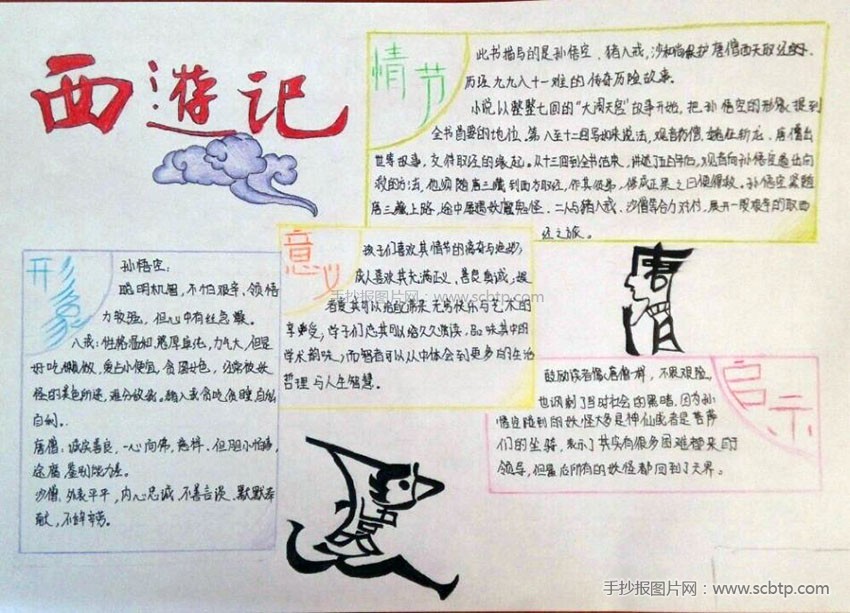 西遊记
情节
此书描写的是孙悟空、猪八戒、沙和尚保护唐僧西天取经的
历经九九八十一难的传奇历险故事。
小说以整整七回的“大闹天宫”故事开始,把孙悟空的形象提到
全书首要的地位。第八至十二回写如来说法,观音访僧,魏征斩龙,唐僧出
世等故事,交待取经的缘起。从十三回到全书结束,讲述了五百年后,观音向孙悟空道出自
救的方法,他须随唐三藏到西方取经,作其徒弟,修成正果之日便得救。孙悟空紧随
唐三藏上路,途中屡遇妖魔鬼怪,二人与猪八戒、沙僧等合力对付,展开一段艰辛的取西
经之旅。
形象
孙悟空:
聪明机智,不怕艰辛,领悟
力较强,但心中有些急躁。
八戒:性格温和,憨厚单纯,力气大,但是
好吃懒做,爱占小便宜,贪图女色,经常被妖
怪的美色所迷,难分敌我。
自制。
唐僧:诚实善良,一心向佛,慈祥,但胆小怕事,
迂腐,鉴别能力差。
沙僧:外表平平,内心忠诚,不善言谈,默默奉
献,不辞辛劳。
意义
孩子们喜欢其情节的离奇与绝妙;
成人喜欢其充满正义、善良真诚;
者是其可以给应带来无穷快乐与艺术的
享受,学子们总其可以给久久赏读,品味其中的
学术韵味;而智者可以从中体会到更多的生活
哲理与人生智慧。
唐僧
启示
鼓励读者像唐僧一样,不畏艰险,
也讽刺了当时社会的黑暗,因为孙
悟空碰到的妖怪大多是神仙或者是菩萨
们的坐骑,表示了其实有很多困难都来自
领导,但最后所有的妖怪都回到了天界。
悟空
手抄报图片网:www.scbtp.com
手抄报图片网:www.scbtp.com